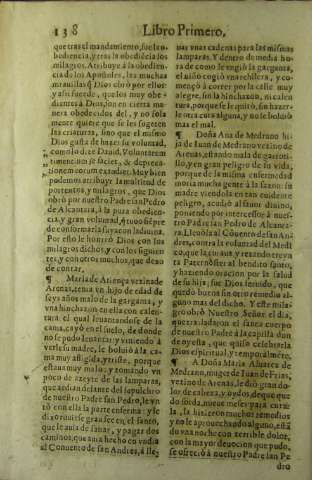 138 Libro Primero,
que tras el mandamiento, fue la o-
bediencia, y tras la obediēcia los
milagros. Atribuye a la obedien-
cia de los Apostoles, las muchas
marauillas q̃ Dios obrò por ellos:
y assi fue, que los muy obe-
dientes à Dios, son en cierta mane-
ra obedecidos del, y no sola
mente quiere que se les sugeten
las criaturas, sino que el mismo
Dios gusta de hazer su voluntad,
como lo dize Dauid, Voluntatem
timentium se faciet, & depreca-
tionem eorum exaudiet. Muy bien
podemos atribuyr la multitud de
portentos, y milagros, que Dios
obrò por nuestro Padre san Pedro
de Alcantara, à la pura obedien-
cia, y gran voluntad, q̃ tuuo siẽpre
de conformar la suya con la diuina.
Por esso le honrrò Dios con los
milagros dichos, y con los siguien-
tes, y con otros muchos, que dexo
de contar.
¶ Maria de Atiença vezina de
Arenas, tenia vn hijo de edad de
seys años malo de la garganta, y
vna hinchazon en ella con calen-
tura el qual leuantandose de la
cama, cayò en el suelo, de donde
no se pudo leuantar: y viniendo à
verle su madre, le boluiò à la ca-
ma muy afligida, y triste, porque
estaua muy malo: y tomando vn
poco de azeyte de las lamparas,
que ardian delante del sepulchro
de nuestro Padre san Pedro, le vn-
tò con ella la parte enferma: y se
durmio
que le auia de sanar, y pagar dos
caminos, que auia hecho en vadia
al Conuento de san Andres, à lle-
uar vnas cadenas para las mismas
lamparas. Y dentro de media ho-
ra de como le vngiò la garganta,
el niño cogiò vna rehilera, y co-
mençò à correr por la calle muy
alegre, sin la hinchazon, ni calen-
tura, porque se le quitò, sin hazer-
le otra cura alguna, y no le boluiò
mas el mal.
¶ Doña Ana de Medrano hi-
ja de Iuan de Medrano vezino de
Arenas, estando mala de garroti-
llo, y en gran peligro de su vida,
porque de la misma enfermedad
moria mucha gente à la sazon: su
madre viendola en tan euidente
peligro, acudiò al santo diuino,
poniendo por intercessor à nues-
tro Padre san Pedro de Alcanta-
ra. Lleuòla al Cõuento de san An-
dres, contra la voluntad del Medi
co, que la curaua, y rezando treynta
Paternõster al bendito santo,
y haziendo oracion por la salud
de su hija, fue Dios seruido, que
quedò buena sin otro remedio al-
guno mas del dicho. Y este mila-
gro obrò Nuestro Señor el dia,
que trasladaron el santo cuerpo
de nuestro Padre à la capilla donde
oy està, que quiso celebrarla
Dios espiritual, y temporalmēte.
¶ A Doña Maria Aluarez de
Medrano, muger de Iuan de Frias,
vezino de Arenas, le diò gran do-
lor de cabeza, y oydos, de que que-
dò sorda, nueue meses: para curar-
la, la hizieron muchos remedios
y no le aprouechando alguno, està
do vna noche con terrible dolor,
con la mayor deuocion que pudo,
se ofreciò à nuestro Padre san Pe
dro